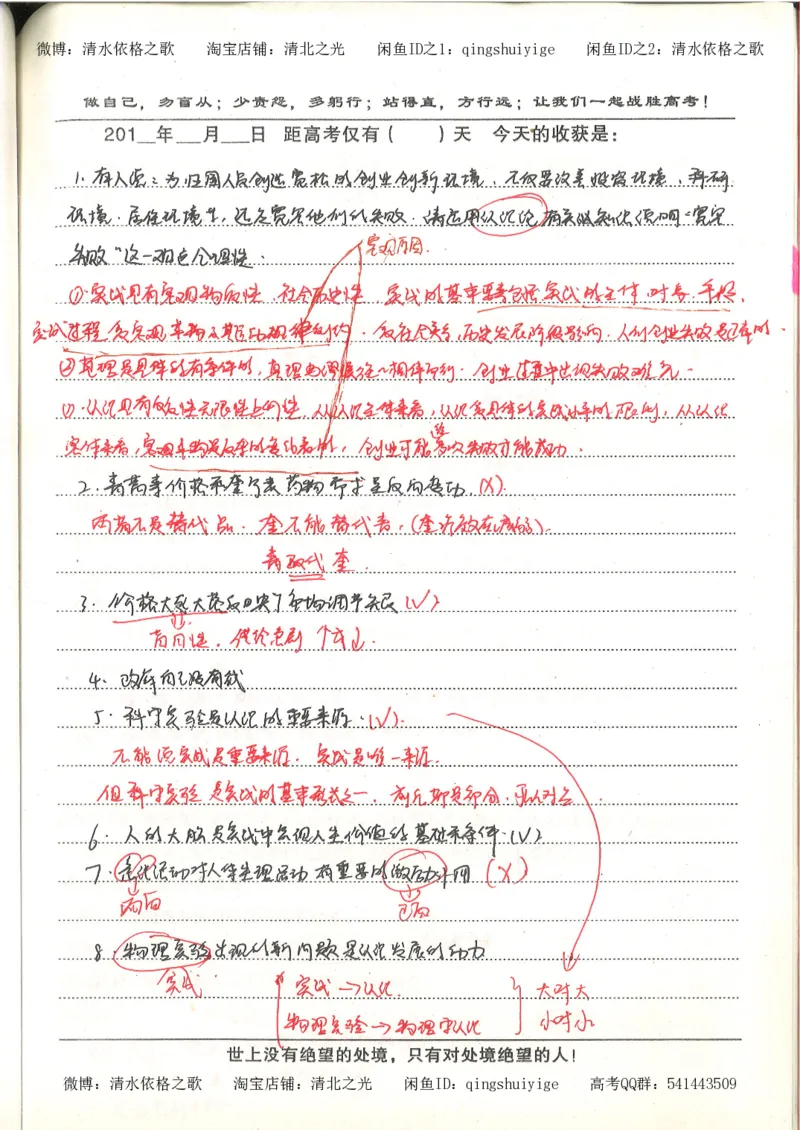 微博：清水依格之歌 淘宝店铺：清北之光 闲鱼ID之1：qingshuiyige 闲鱼ID之2：清水依格之歌
做自己，勿盲从；少责怨，多躬行；站得直，方行远；让我们一起战胜高考！
201__年___月___日 距高考仅有（ ）天 今天的收获是：
1. 有人须：为归国人员创造宽松的创业创新环境，不仅要改善投资环境、科研
环境、居住环境等，还应宽容他们的失败。请运用认识论有关知识说明“宽容
失败”这一观点合理性。
客观原因.
①实践具有客观物质性、社会历史性 实践的基本要素包括实践的主体、对象、手段、
实践过程受客观事物及其运动规律制约 历史发展阶段影响，人们创业失败是
②真理是具体的有条件的，真理 创业过程中出现失败难免
认识具有反复性无限性上升性，从认识主体来看，认识受具体的实践水平的限制，从认识
客体来看，客观事物是反复的变化着的，创业可能 多次失败才能成功.
2. 青蒿素价格和奎宁类药物需求是反向变动. (X)
两者不是替代品. 奎不能替代青，(奎疗效在降低).
青取代奎.
3. 价格大起大落反映了市场调节失灵 (√)
盲目性.
4. 改革
5. 科学实验是认识的重要来源. (√).
不能说实践是重要来源. 实践是唯一来源.
但科学实验是实践的基本形式之一，
6. 人的大脑是实践中实现人生价值的基础和条件. (√)
7. 意识活动对人体生理活动有重要的激励作用 (X)
8. 物理实验出现的新问题是认识发展的动力
实践
实践→认识.
大对大
物理实验→物理学认识
小对小
世上没有绝望的处境，只有对处境绝望的人！
微博：清水依格之歌 淘宝店铺：清北之光 闲鱼ID：qingshuiyige 高考QQ群：541443509